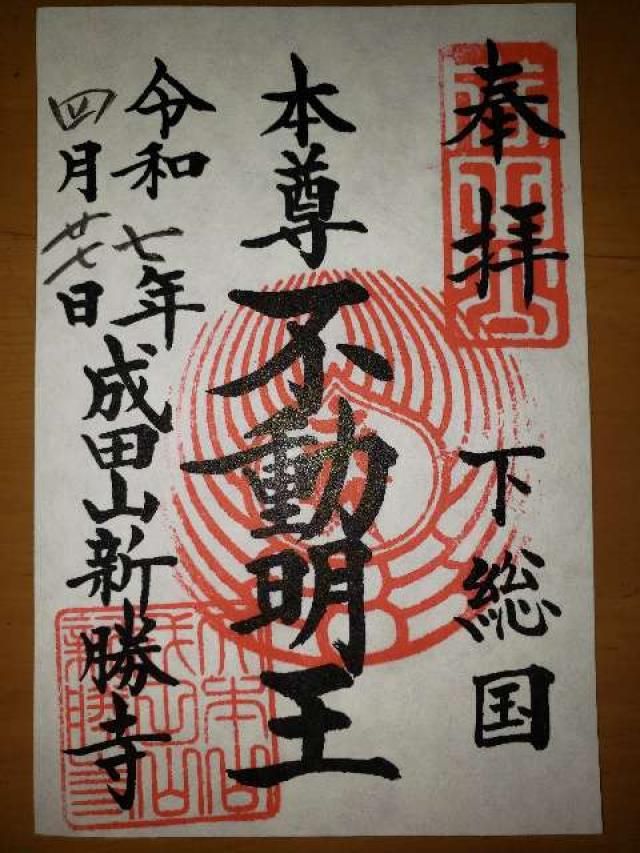 奉拝
下総国
本尊
不動明王
令和七年
四月廿七日
成田山新勝寺